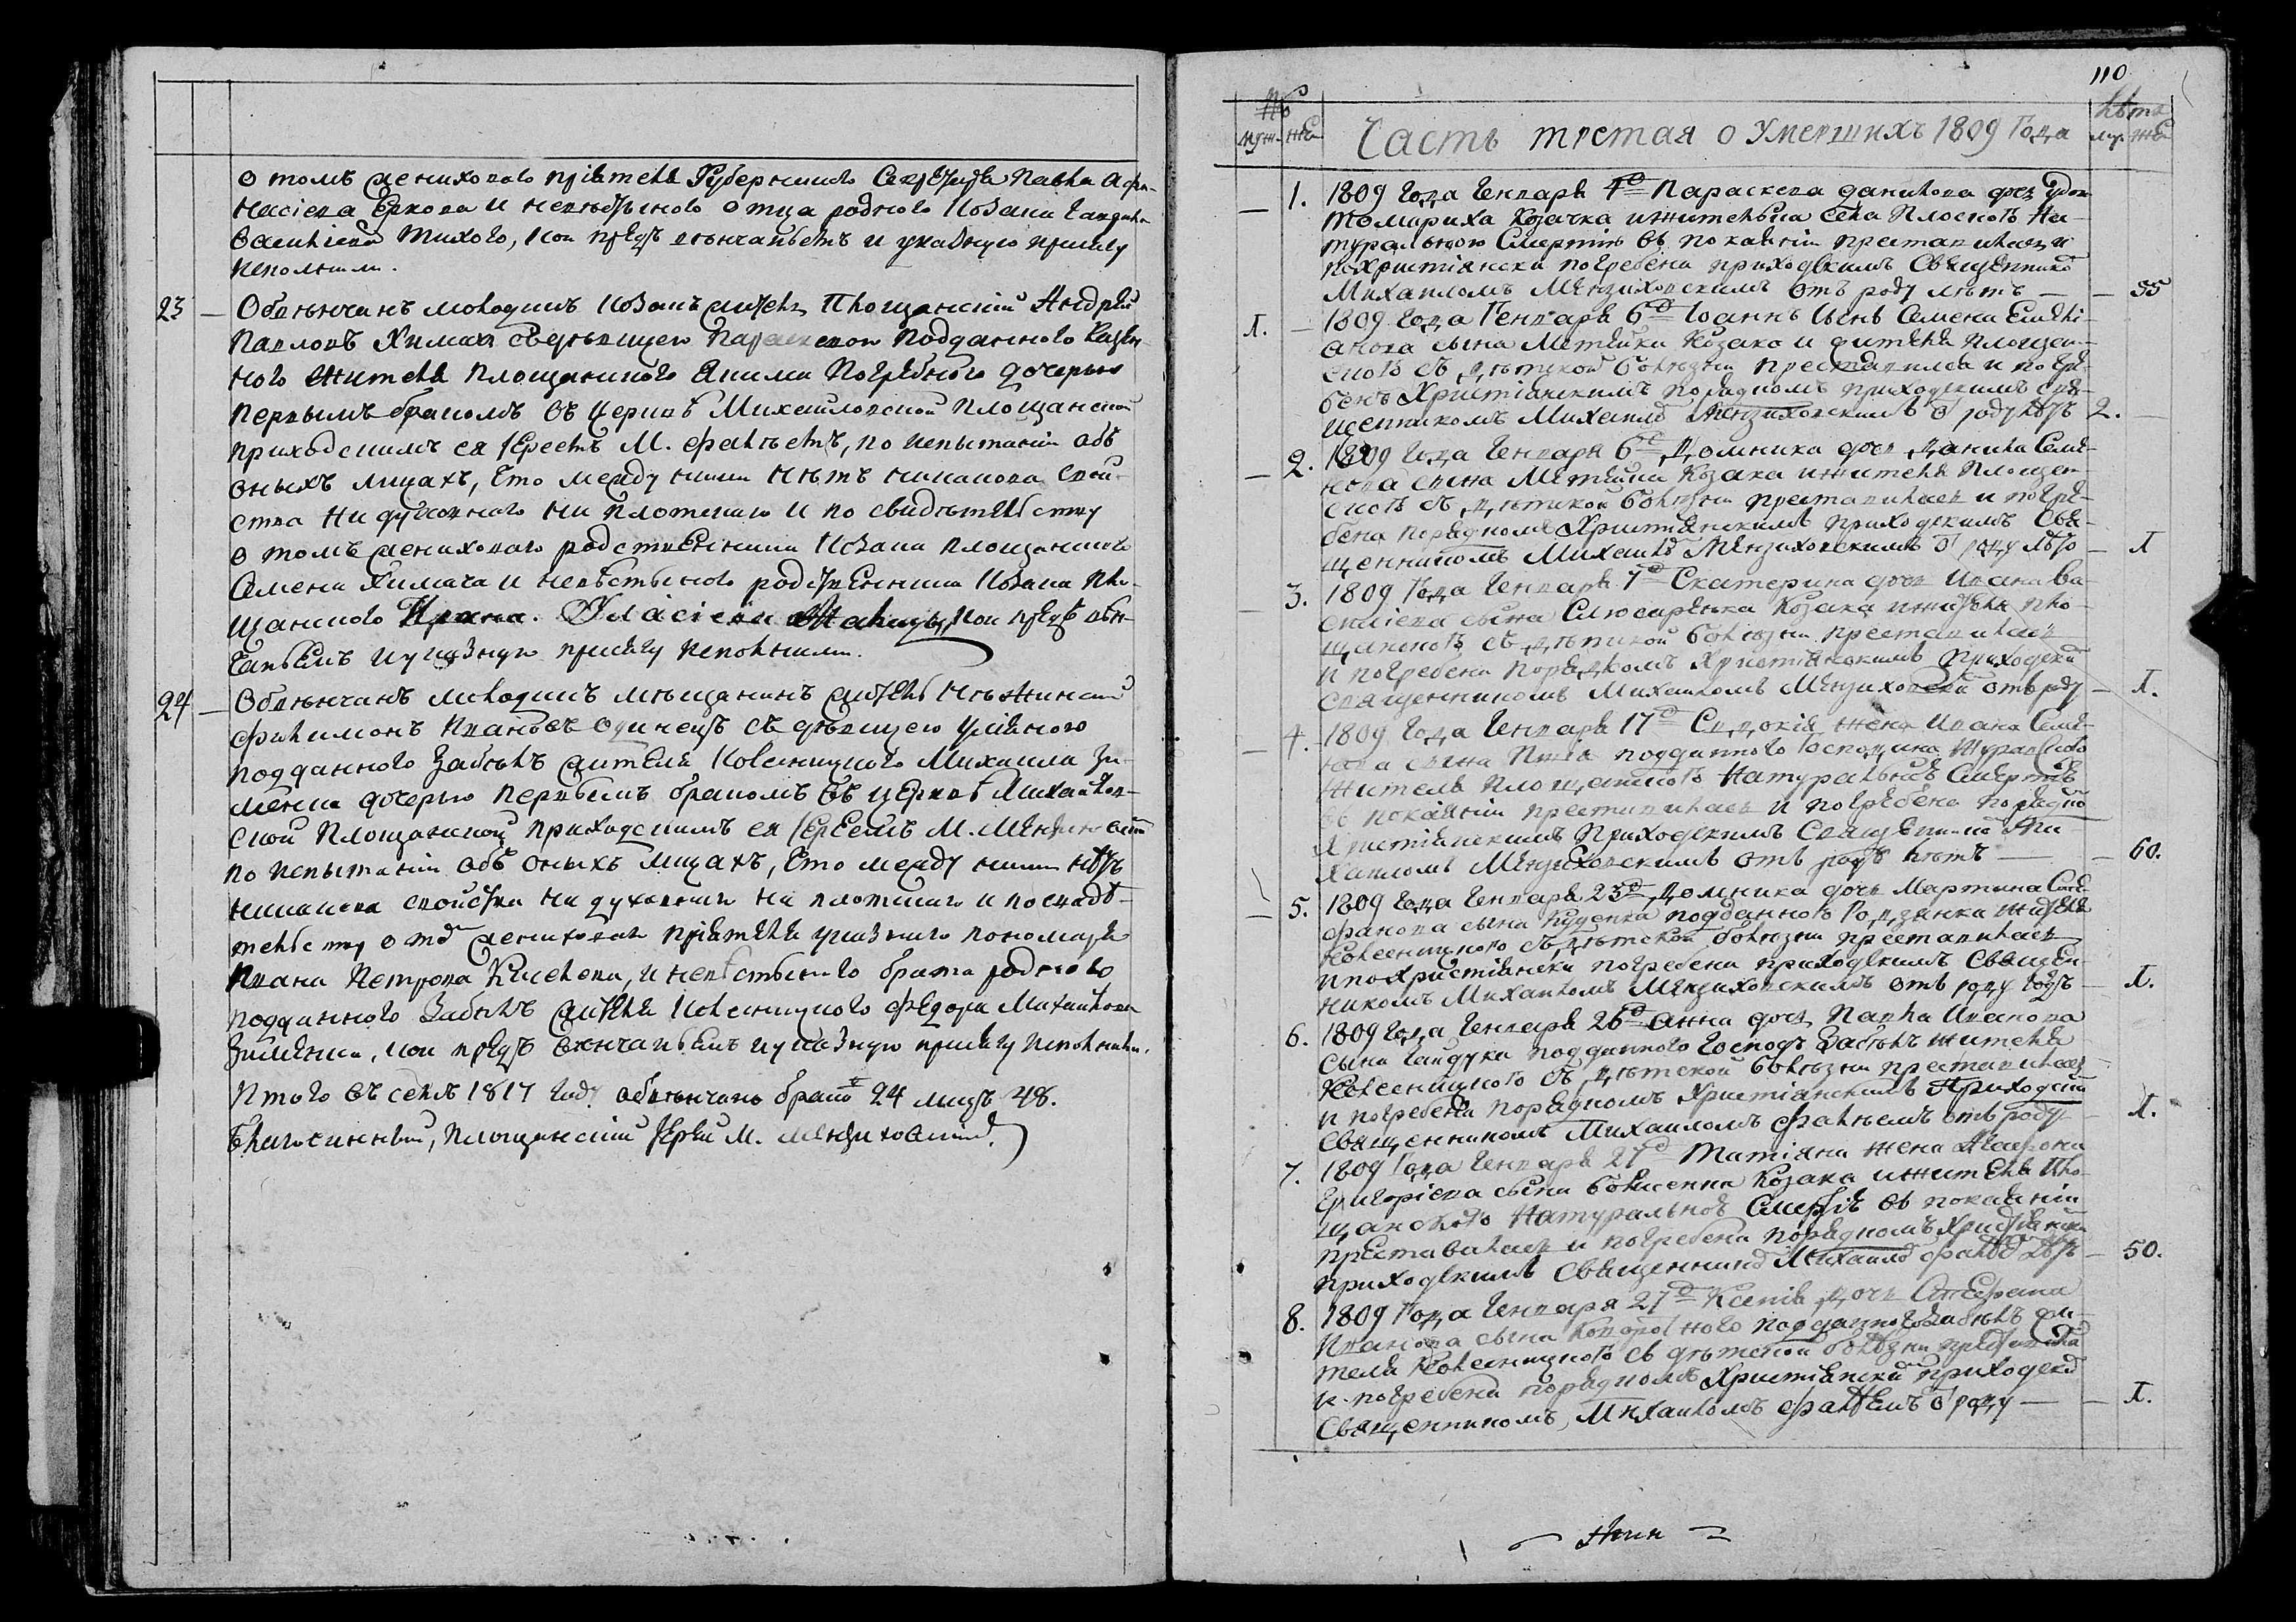 о томъ жениховаго пріятеля Губернского Секретаря Павла Афа-
насіева Еркова и невѣстьного отца родного Козака
Василіева Тихого, кои предъ вѣнчаніемъ и указную присягу
исполнили.
23 — Обвѣнчанъ молодикъ козакъ житель Площанскій Андрей
Павловъ Химачъ съ дѣвицею Параскевою подданного Казен-
ного жителя Площанского Якима Погребного дочерью
первымъ бракомъ въ церквѣ Михайловской Площанской
приходскимъ ея Іереемъ М. Фалѣемъ, по испытаніи объ
оныхъ лицахъ, что между ними нѣтъ никакова свой-
ства ни духовного ни плотского и по свидѣтельству
о томъ жениховаго родственника Козака Площанского
Семена Химача и невѣстьного родственника Козака Пло-
щанского Ивана. Власіева кои предъ вѣн-
чаніемъ и указную присягу исполнили.
24 — Обвѣнчанъ молодикъ мѣщанинъ житель Нѣжинскій
Филимонъ Ивановъ Одинецъ съ дѣвицею
подданного Забѣлъ жителя Колесницкого Михаила Зи-
менка дочерью первымъ бракомъ въ церквѣ Михайлов-
ской Площанской приходскимъ ея Іереемъ М. Мензиховскимъ
по испытаніи объ оныхъ лицахъ, что между ними нѣтъ
никакова свойства ни духовного ни плотского и по свидѣ-
тельству о томъ женихового пріятеля указного пономаря
Ивана Петрова Киселева, и невѣстьного брата родного
подданного Забѣлъ жителя Колесницкого Федора Михайлова
Зименка, кои предъ вѣнчаніемъ и указную присягу исполнили.
Итого въ семъ 1817 году обвѣнчано браковъ 24 лицъ 48.
Благочинный, Площанскій Іерей М. Мензиховскій.
110
№
муж. же
Часть третая о Умершихъ 1809 Года
Лѣта
муж. же
— 1. 1809 Года Генваря 4го Параскева Данилова дочь вдова
Томариха Козачка и жителька села Плоского На-
туральною Смертію въ покаяніи преставилась и
по Христіянски погребена приходскимъ Священникомъ
Михаиломъ Мензиховскимъ отъ роду лѣтъ — — 55
1. — 1809 Года Генваря 6го Іоаннъ сынъ Семена Емелі-
анова сына Метелки Козака и жителя Площан-
ского съ дѣтской болѣзни преставился и погре-
бенъ Христіянскимъ порядкомъ приходскимъ Свя-
щенникомъ Михаиломъ Мензиховскимъ отъ роду лѣтъ 2. —
— 2. 1809 Года Генваря 6го Домника дочь Данила Семе-
нова сына Метелки Козака и жителя Площан-
ского съ дѣтской болѣзни преставилась и погре-
бена порядкомъ Христіянскимъ приходскимъ Свя-
щенникомъ Михаиломъ Мензиховскимъ отъ роду — 1
— 3. 1809 Года Генваря 7го Екатерина дочь Ивана Ва-
силіева сына Слюсаренка Козака и жителя Пло-
щанского съ дѣтской болѣзни преставилась
и погребена порядкомъ Христіянскимъ Приходскимъ
Священникомъ Михаиломъ Мензиховскимъ отъ роду — 1.
— 4. 1809 Года Генваря 17го Евдокія жена Ивана Семе-
нова сына подданного Господина
жителя Площанского Натуральною Смертію
въ покаяніи преставилась и погребена порядкомъ
Христіянскимъ Приходскимъ Священникомъ Ми-
хаиломъ Мензиховскимъ отъ роду лѣтъ — — 60.
— 5. 1809 Года Генваря 23го Домника дочь Мартина
сына подданного Родзянки жителя
Колесницкого съ дѣтской болѣзни преставилась
и по Христіянски погребена приходскимъ Священ-
никомъ Михаиломъ Мензиховскимъ отъ роду годъ — 1.
6. 1809 Года Генваря 26го Анна дочь Павла Иванова
сына Гайдука подданного Господъ Забѣлъ жителя
Колесницкого съ дѣтской болѣзни преставилась
и погребена порядкомъ Христіянскимъ Приходскимъ
Священникомъ Михаиломъ Фалѣемъ отъ роду — 1.
7. 1809 Года Генваря 27го Татіяна жена
Григоріева сына Козака и жителя Пло-
щанского Натуральною Смертію въ покаяніи
преставилась и погребена порядкомъ Христіянскимъ
приходскимъ Священникомъ Михаиломъ Фалѣемъ лѣтъ — 50.
8. 1809 Года Генваря 27го Ксенія дочь
Иванова сына подданного Забѣлъ жи-
теля Колесницкого съ дѣтской болѣзни преставилась
и погребена порядкомъ Христіянскимъ приходскимъ
Священникомъ, Михаиломъ Фалѣемъ отъ роду — — 1.